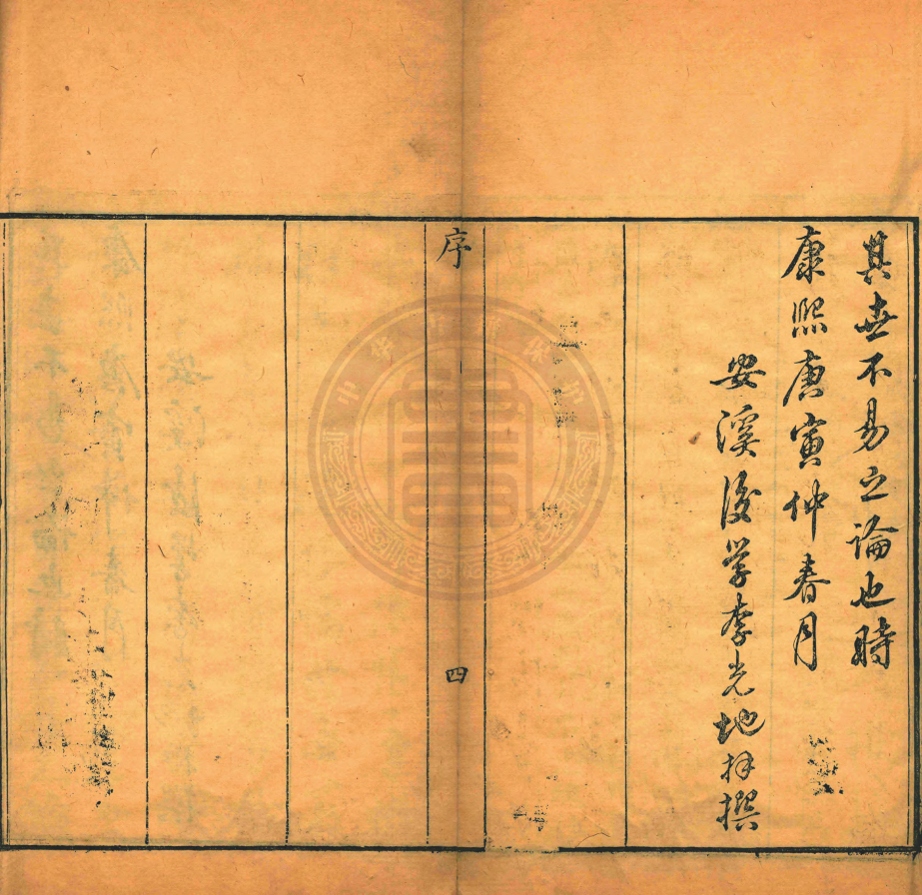 其世不易之論也時
康熙庚寅仲春月
安溪後学李光地拜撰
序
四